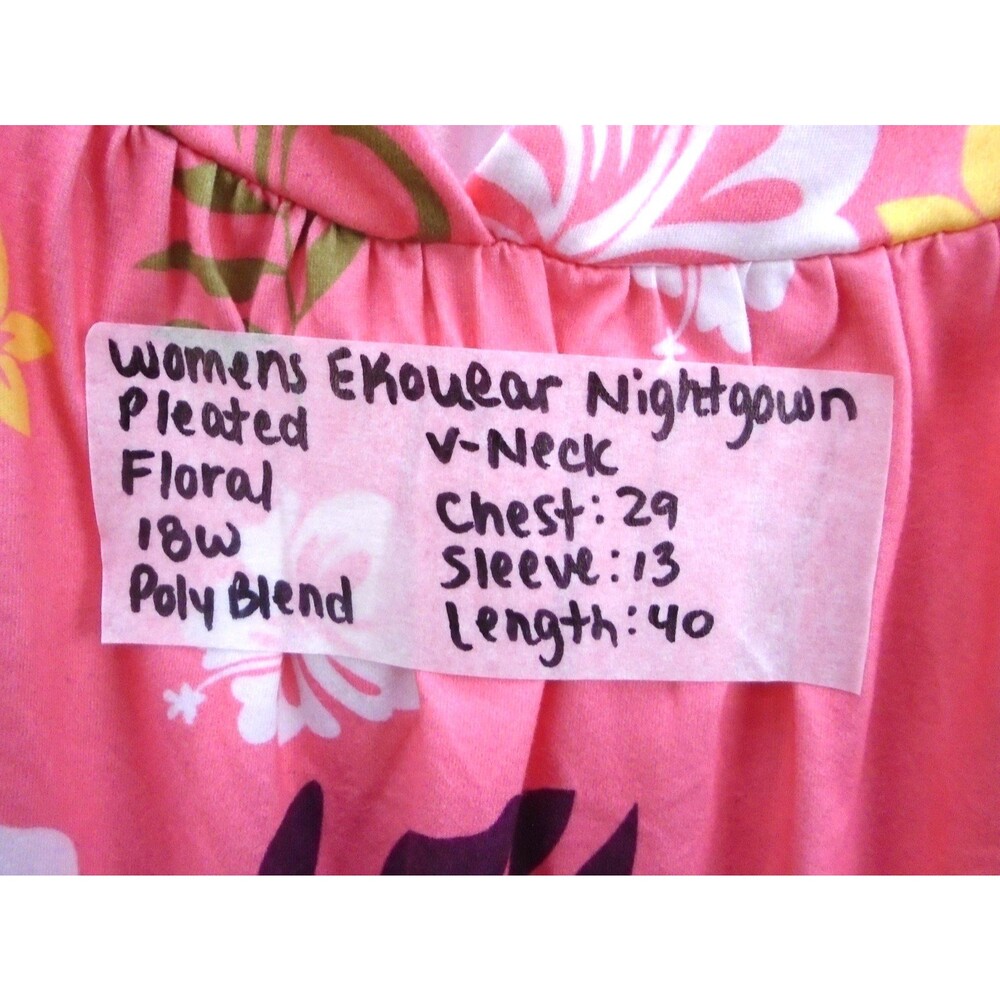 Womens EKouear Nightgown
Pleated
Floral
18W
Poly Blend
V-Neck
Chest: 29
Sleeve: 13
Length: 40